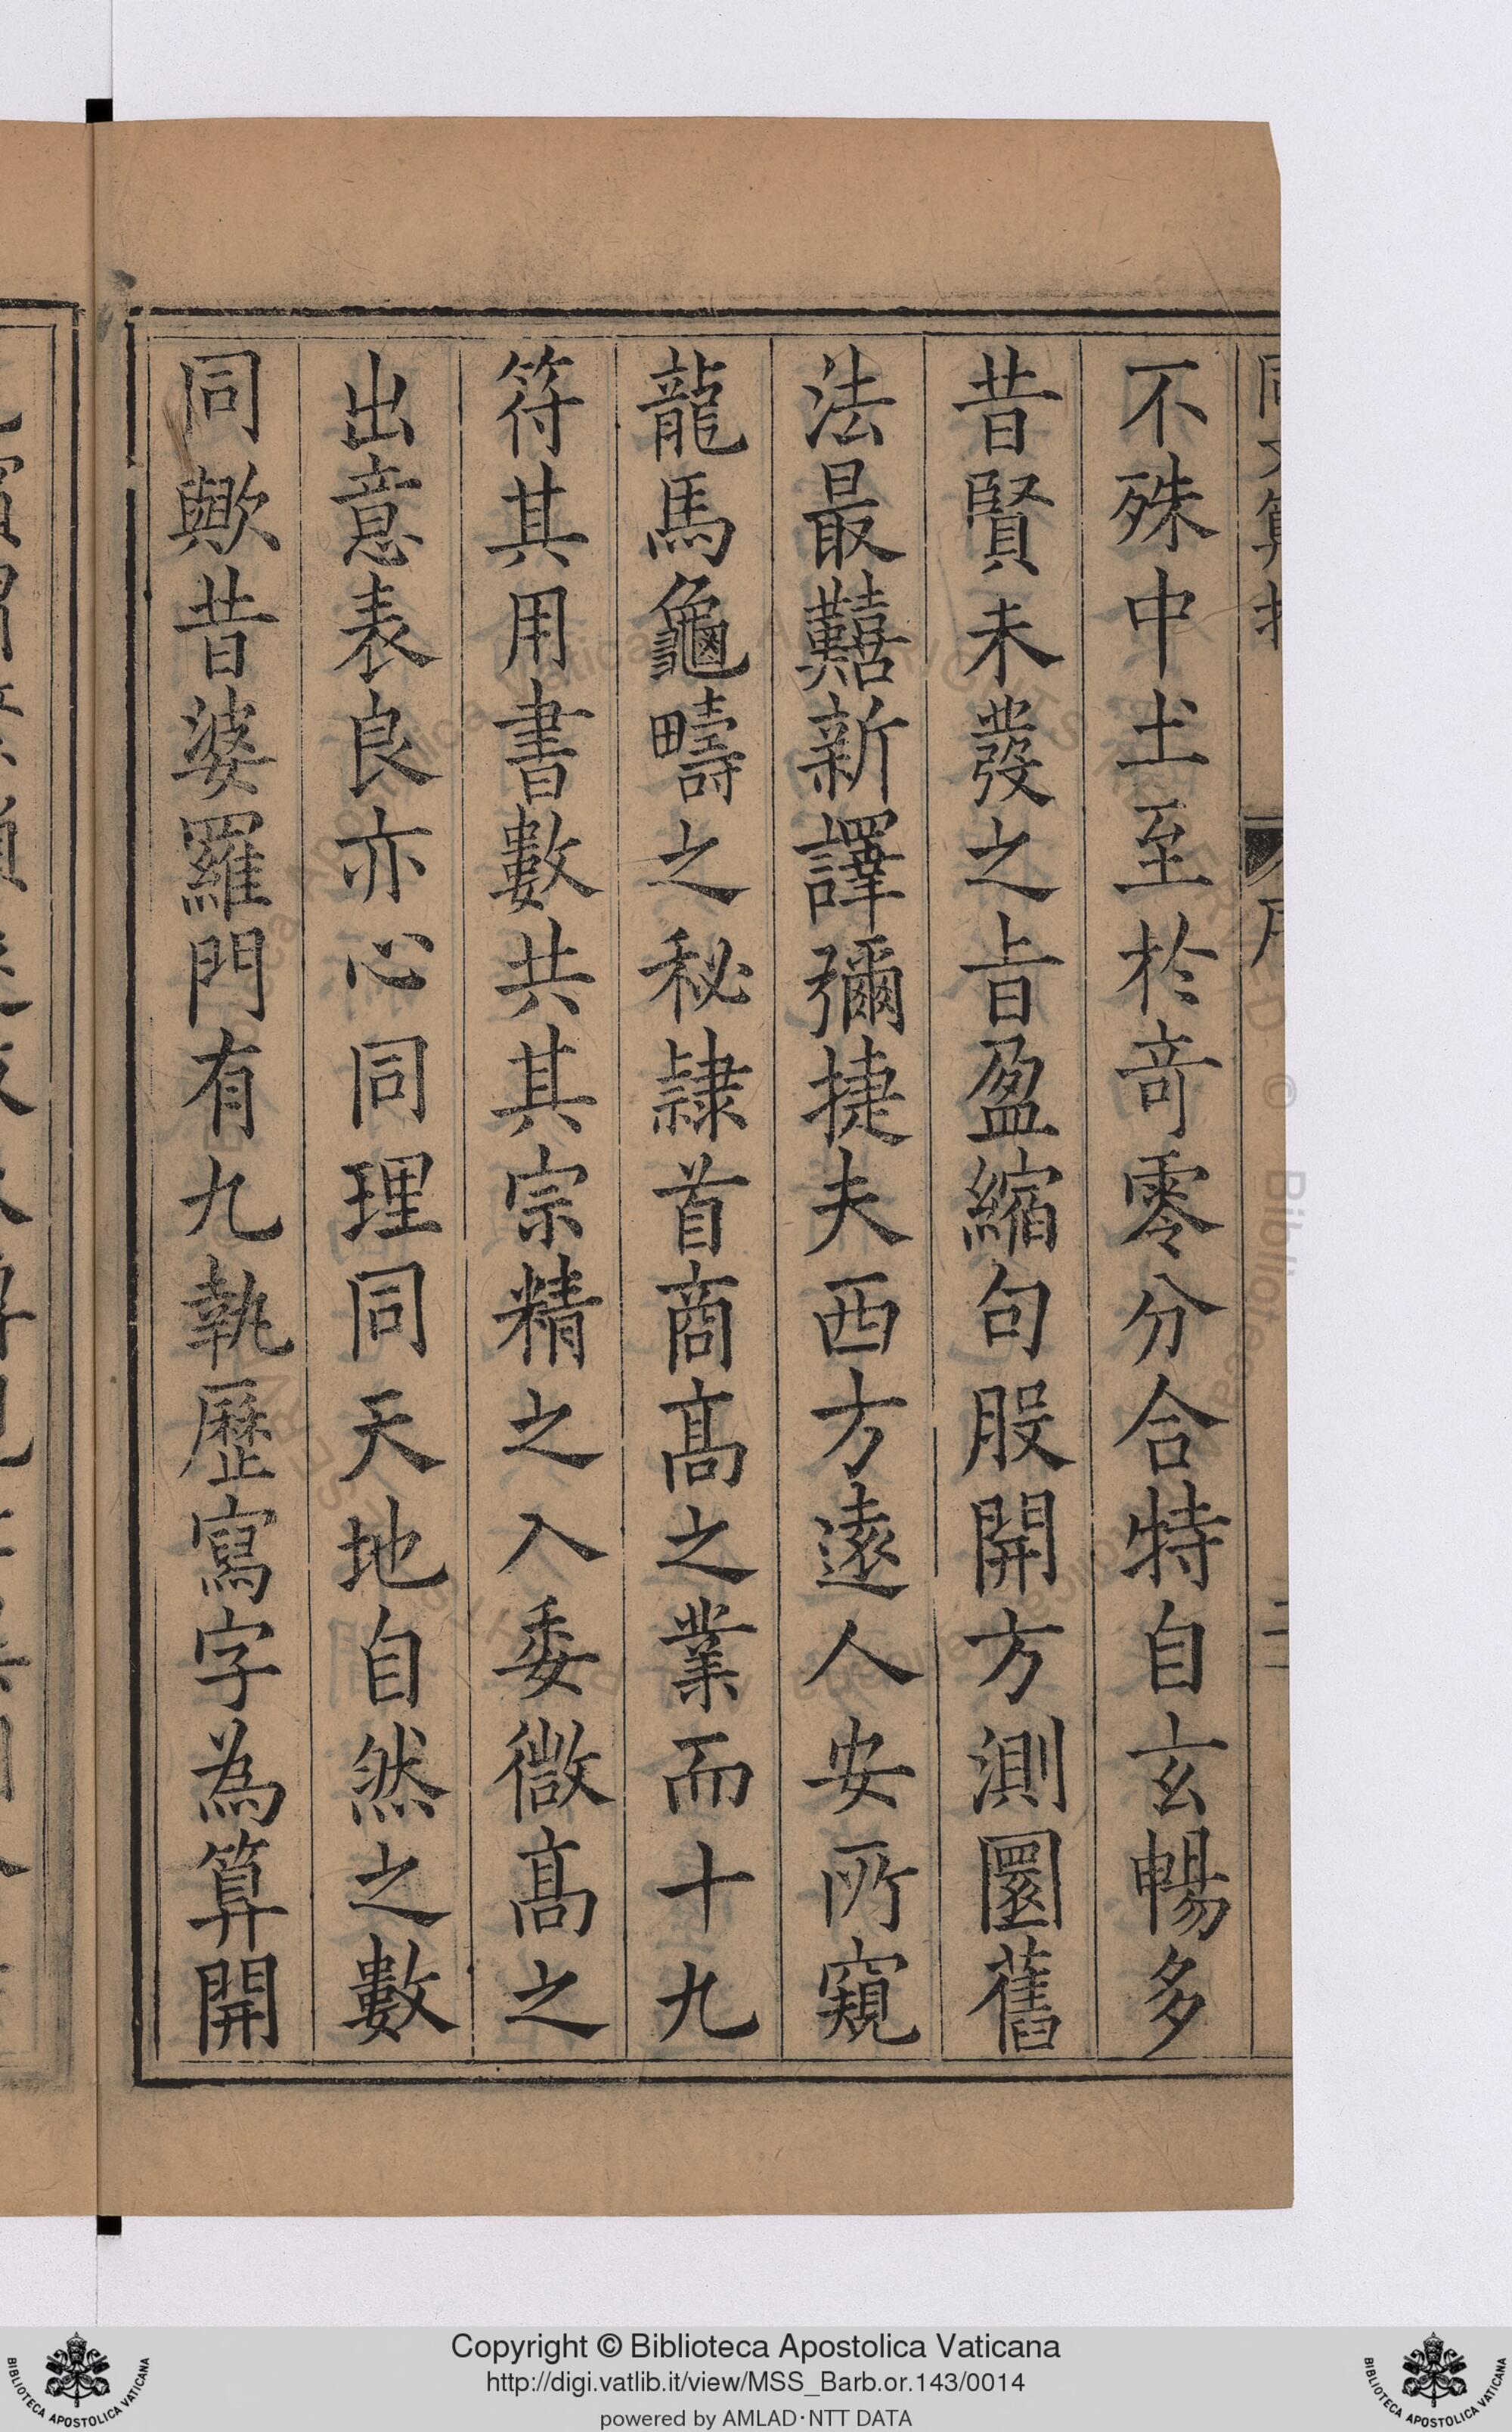 不殊中土至於竒零分合特自玄暢多
昔賢未發之旨盈縮句股開方測圜舊
法最囏新譯彌捷夫西方遠人安所窺
龍馬龜疇之秘隷首商髙之業而十九
符其用書數共其宗精之入委微髙之
出意表良亦心同理同天地自然之數
同歟昔婆羅門有九執歷寫字為算開
Copyright © Biblioteca Apostolica Vaticana
http://digi.vatlib.it/view/MSS_Barb.or.143/0014
powered by AMLAD·NTT DATA
BIBLIOTECA APOSTOLICA VATICANA
BIBLIOTECA APOSTOLICA VATICANA